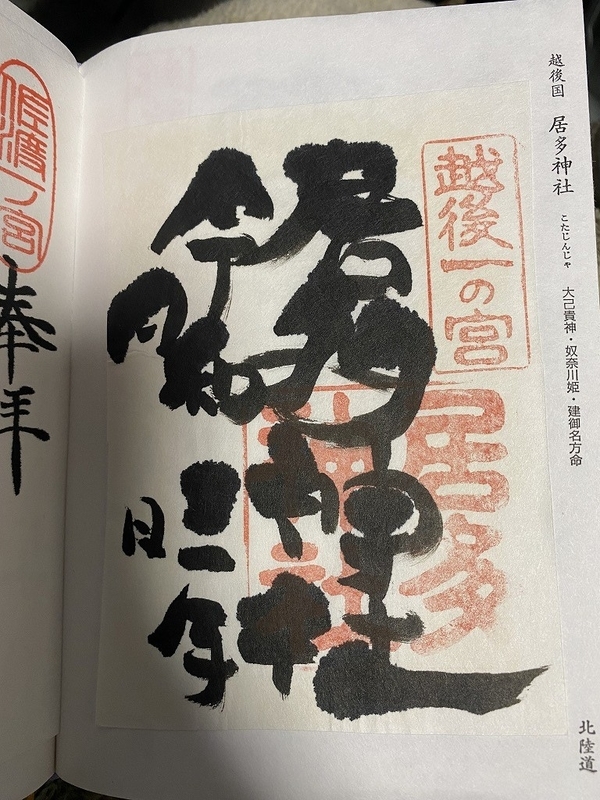 越後国 居多神社 こたじんじゃ 大己貴神・奴奈川姫・建御名方命
北陸道
越後一の宮
居多
神社
居多神社
令和 年
月 日
佐渡一ノ宮
奉拝